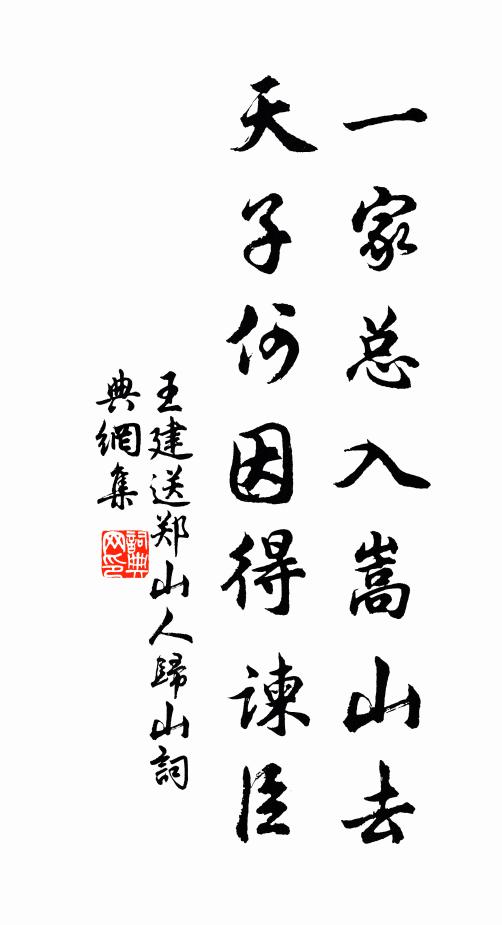 一家总入嵩山去
天子何因得谏臣
王建送郑山人歸山詞
典網集
詞典网印